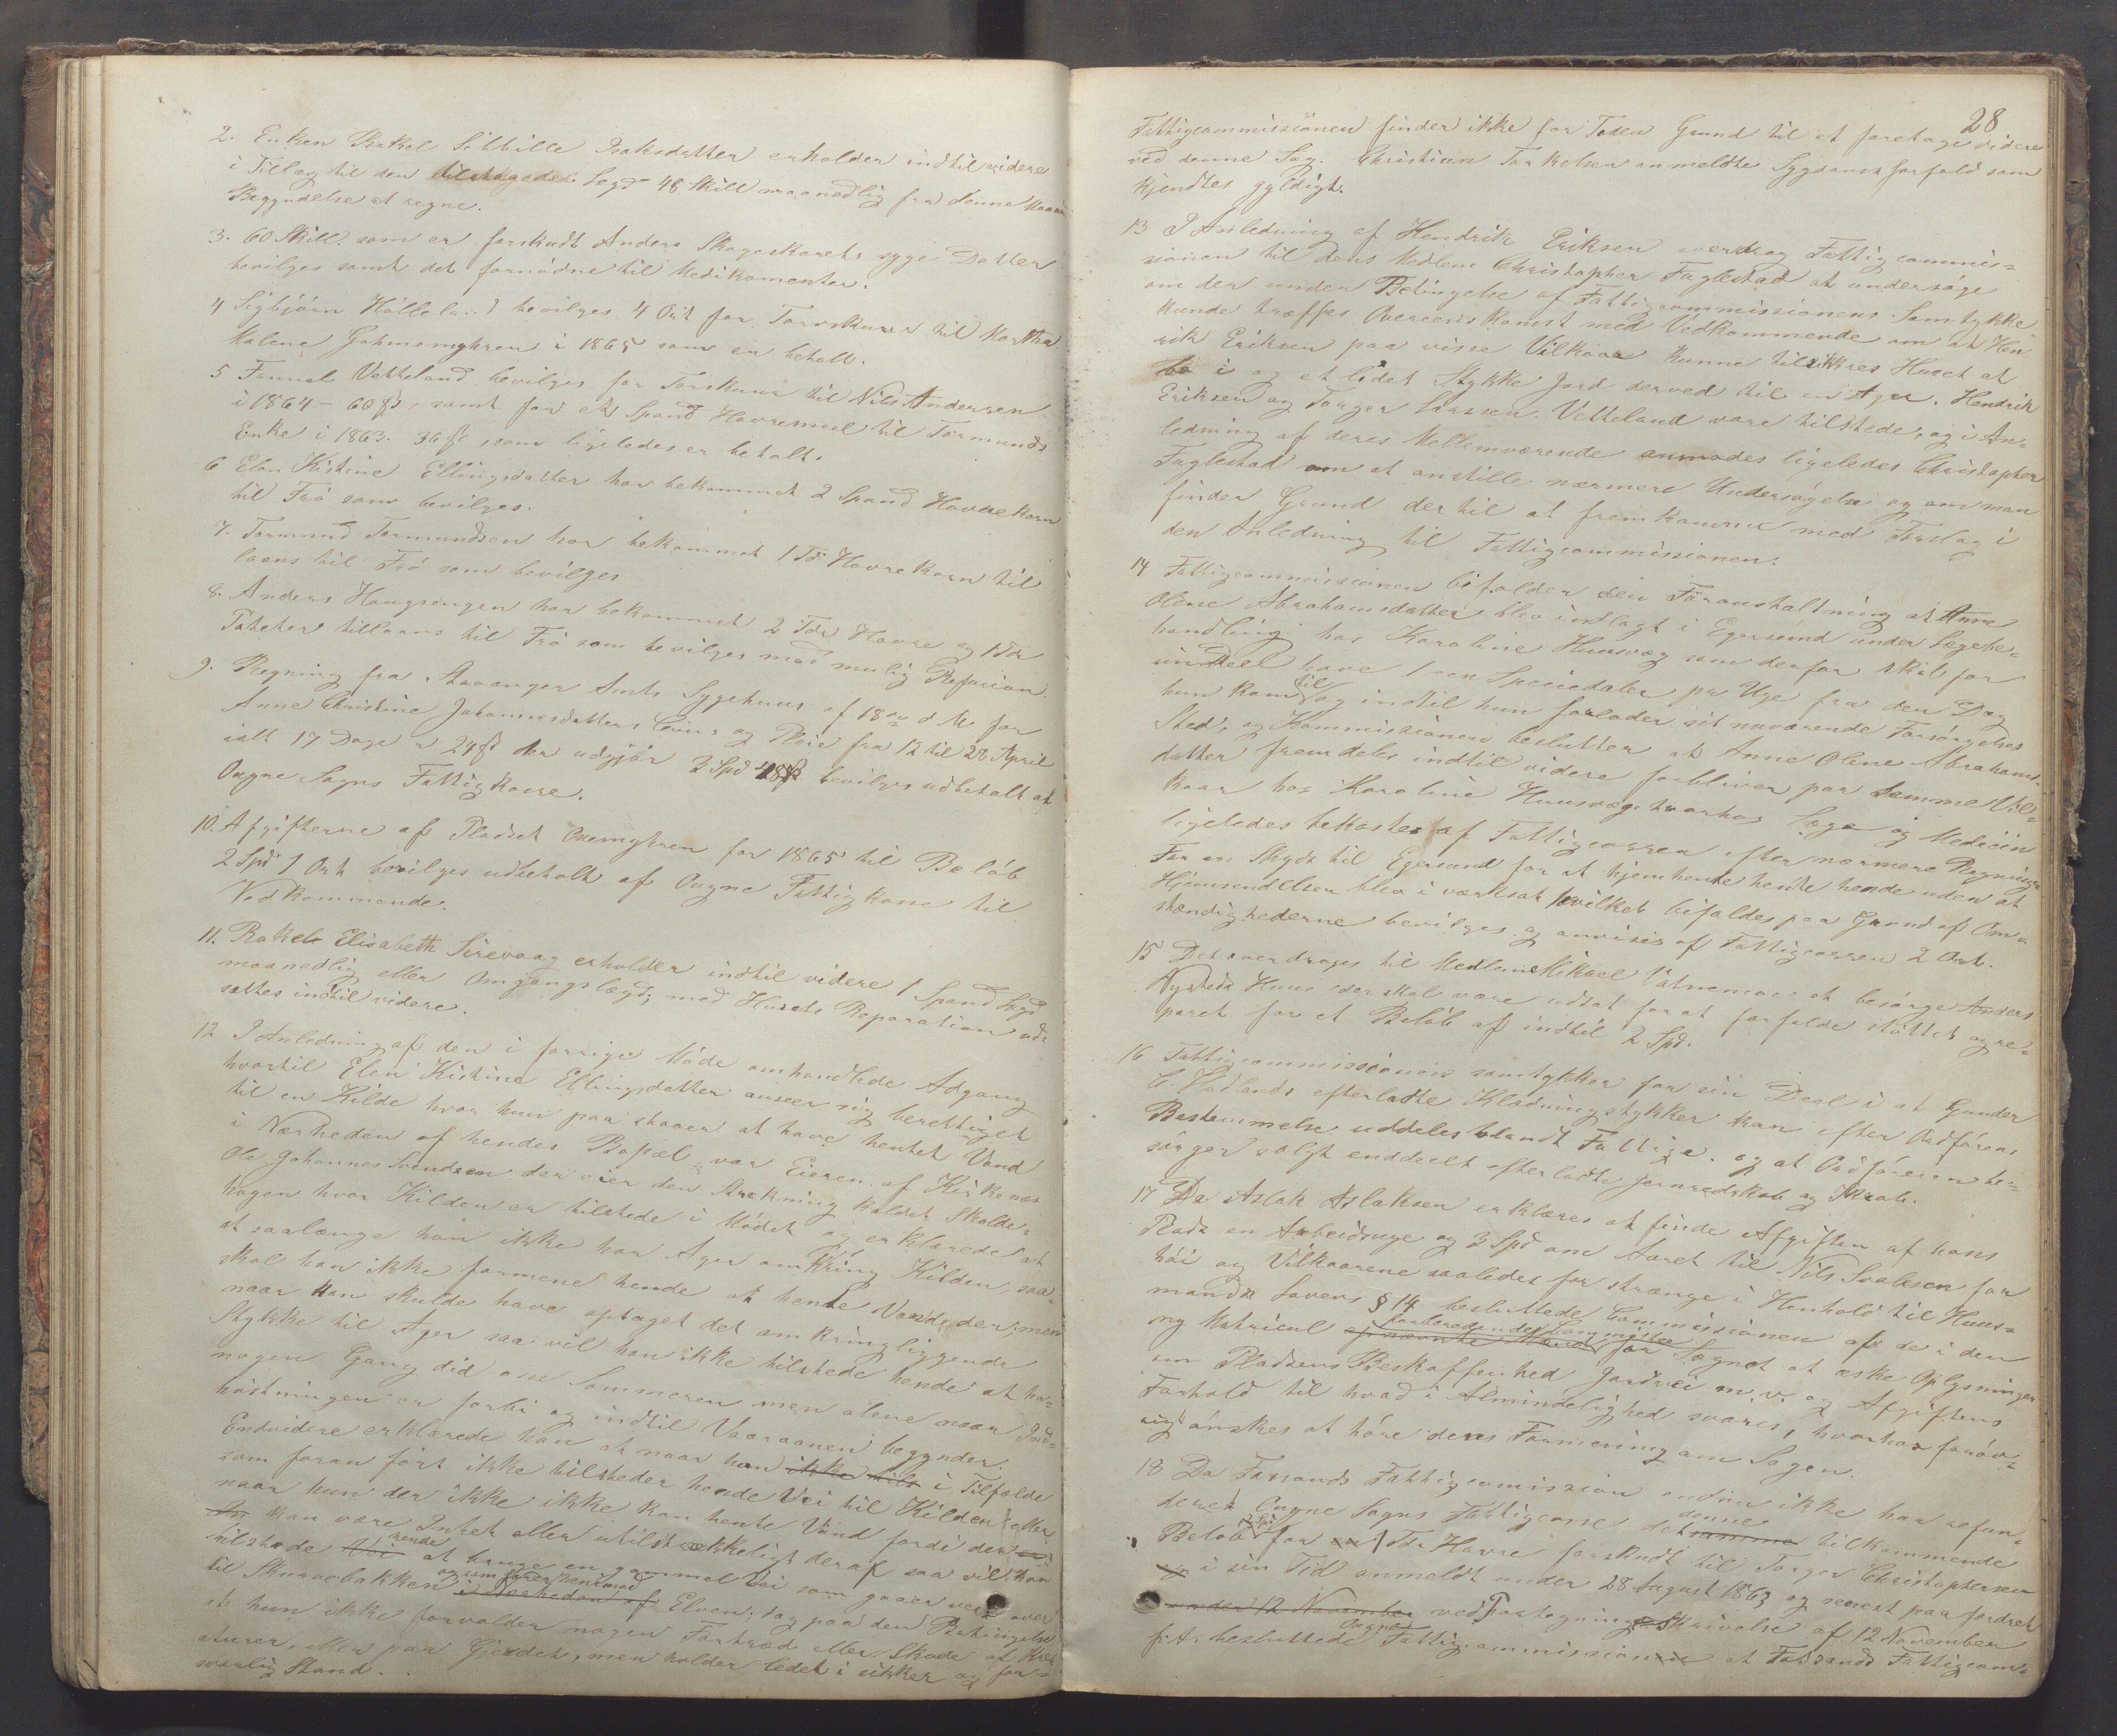 2. Enken Rakel Sibbille Isaksdatter erholder indtil videre
i Tillæg til den tilstagede Legd 48 Skill maanedlig fra denne Maaneds
Begyndelse at regne.
3. 60 Skill. som er forskudt Anders Skageskarets syge Datter
bevilges samt det fornødne til Medikamenter.
4 Sigbjörn bevilges 4 Ort for Torvskurer til Martha
Malene i 1865 som er betalt.
5 Vetteland bevilges for Torskuur til Nils Andersen
i 1864 - 60 ß, samt for et Spand Havremeel til Tormunds
Enke i 1863. 36 ß, som ligeledes er betalt.
6 Elen Kistine Ellingsdatter har bekommet 2 Spand Havrekorn
til Frö som bevilges.
7. Tormund Tormundsen har bekommet 1 Tde Havrekorn til
laans til Frö som bevilges
8. Anders Haugsengen har bekommet 2 Tdr Havre og 1 Tde
Poteter tillaans til Frö som bevilges mod mulig Refusion.
9. Regning fra Stavanger Amts Sygehuus af 18de d M for
Anne Christine Johannesdatters og Pleie fra 12 til 28 April
ialt 17 Dage a 24 ß der udgjör 3 Spd 48 ß bevilges udbetalt af
Ougne Sogns Fattigkasse.
10. Afgifterne af Pladset Oremyhren for 1865 til Belöb
2 Spd 1 Ort bevilges udbetalt af Ougne Fattigkasse til
Vedkommende.
11. Rakel Elisabeth Sirevaag erholder indtil videre 1 Spand Legd
maanedlig eller Omgangslægd; med Husets Reparation ud=
sættes indtil videre.
12 I Anledning af den i forrige Möde omhandlede Adgang
hvortil Elen Kistine Ellingsdatter anseer sig berettiget
til en Kilde hvor hun paa staaer at have hentet Vand
i Nærheden af hendes Bopæl, var Eieren af Kirkenæs
Ole Johannes Svendsen der eier den Strekning kaldet Skolde=
hagen hvor Kilden er tilstede i Mödet og erklærede at
at saalænge han ikke har Ager omkring Kilden, saa
skal han ikke formene hende at hente Vand der; men
naar han skulde have optaget det omkringliggende
Stykke til Ager saa vil han ikke tilstede hende at ha=
nogen Gang did om Sommeren men alene naar Ind=
höstningen er forbi og indtil Vaaraanen begynder.
Endvidere erklærede han at naar han ikke i Tilfælde
som foran fört ikke tilsteder hende Vei til Kilden eller
naar hun der ikke ikke kan hente Vand fordi der er
kan være Intet eller utilstrækkeligt deraf saa vil han
tilstede hende Vei at bruge en gammel Vei som gaaer over
til Skurvebakken og som förer hen mod i Nærheden af Elven; dog paa den Betingelse
at hun ikke forvolder nogen Fortræd eller Skade af Kre=
aturer, eller paa Gjerdet, men holder ledet i sikker og for=
svarlig Stand.
28
Fattigcommissionen finder ikke for Tiden Grund til at foretage videre
ved denne Sag. Christian Torkelsen anmeldte Sygdomsforfald som
kjendtes gyldigt.
13 I Anledning af Hendrik Eriksen overdrog Fattigcommis=
sionen til dens Medlem Christopher Fuglestad at undersöge
om der under Betingelse af Fattigcommissionens Samtykke
kunde træffes Overeenskomst med Vedkommende om at Hen
rik Eriksen paa visse Vilkaar kunne tilsikkres Huset at
bo i og et lidet Stykke Jord derved til en Ager. Hendrik
Eriksen og Torger Larsen Vetteland vare tilstede, og i An=
ledning af deres Mellemværende anmodes ligeledes Christopher
Fuglestad om at anstille nærmere Undersögelse og om man
finder Grund dertil at fremkomme med Forslag i
den Anledning til Fattigcommissionen.
14 Fattigcommissionen bifalder den Foranstaltning at Anne
Olene Abrahamsdatter blev indlagt i Egersund under Lægebe=
handling hos Karoline Huusvæg som derfor skal for
sin Deel have 1 een Speciedaler pr Uge fra den Dag
hun kom til og indtil hun forlader sit nuværende Forsörgelses
Sted, og Kommissionen beslutter at Anne Olene Abrahams=
datter fremdeles indtil videre forbliver paa samme Vil=
kaar hos Karoline Huusvæg, hvorhos Læge og Medicin
ligeledes bekostes af Fattigcassen efter nærmere Regning
For en Skyds til Egersund for at hjemhente hende uden at
Hjemsendelsen blev i værksat hvilket bifaldes paa Grund af Om=
stændighederne bevilges og anvises af Fattigcassen 2 Ort.
15 Det overdrages til Medlem Mikael Vatnemoe at besörge Anders
Nysteds Huus der skal være udsat for at forfalde stöttet og re=
pareret for et Belöb af indtil 2 Spd.
16 Fattigcommissionen samtykker for sin Deel i at Gunder
C. Hadlands efterladte Klædningsstykker kan efter Ordförens
Bestemmelse uddeles blandt Fattige. og at Ordföreren be=
sörger solgt enddeelt efterladte Jernredskab og Skrab.
17 Da Aslak Aslaksen erklæres at finde Afgiften af hans
Plads en Arbeidsuge og 3 Spd om Aaret til Nils Svalesen for
höi og Vilkaarene saaledes for strænge i Henhold til Huus=
mands Lovens § 14 besluttede Commissionen af de i den
ny Matricul forberedende Committee opnævnte Mænd for Sognet at æske Oplysninger
om Pladsens Beskaffenhed Jordvei m. v. og Afgiftens
Forhold til hvad i Almindelighed svares, hvorhos foröv=
rigt önskes at höre deres Formening om Sagen.
18 Da Fossands Fattigcommission endnu ikke har refun=
deret Ougne Sogns Fattigcasse det denne samme tilkommende
Belöb 2 Spd for en 1 Tde Havre forskudt til Torger Christophersen
og i sin Tid anmeldt under 28 August 1863 og senest paafordret
under 12 November ved Paategning Skrivelse af 12 November
f. A: besluttede Ougne Fattigcommissionen at Fossands Fattigcom=